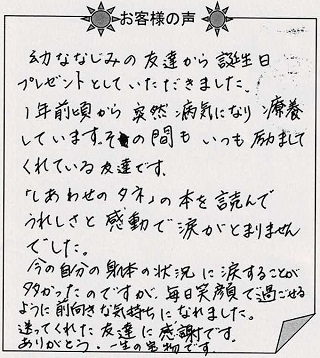 お客様の声
幼ななじみの友達から誕生日
プレゼントとしていただきました。
1年前頃から突然病気になり療養
しています。その間もいつも励まして
くれている友達です。
「しあわせのタネ」の本を読んで
うれしさと感動で涙がとまりません
でした。
今の自分の身体の状況に涙することが
多かったのですが、毎日笑顔で過ごせる
ように前向きな気持ちになれました。
送ってくれた友達に感謝です。
ありがとう。一生の宝物です。